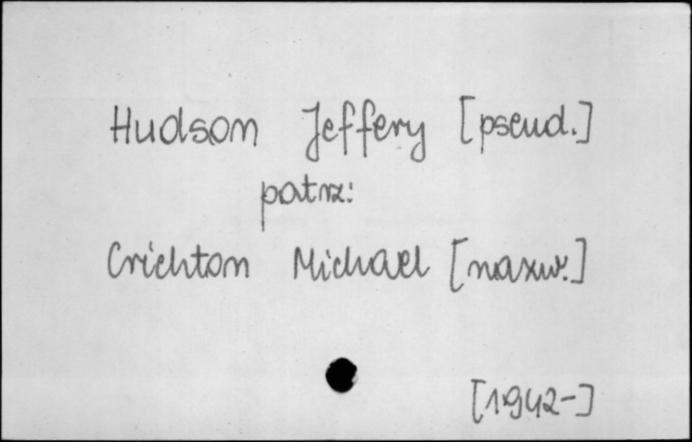 Hudson Jeffery [pseud.]
patrz:
Crichton Michael [nazw.]
[1942-]